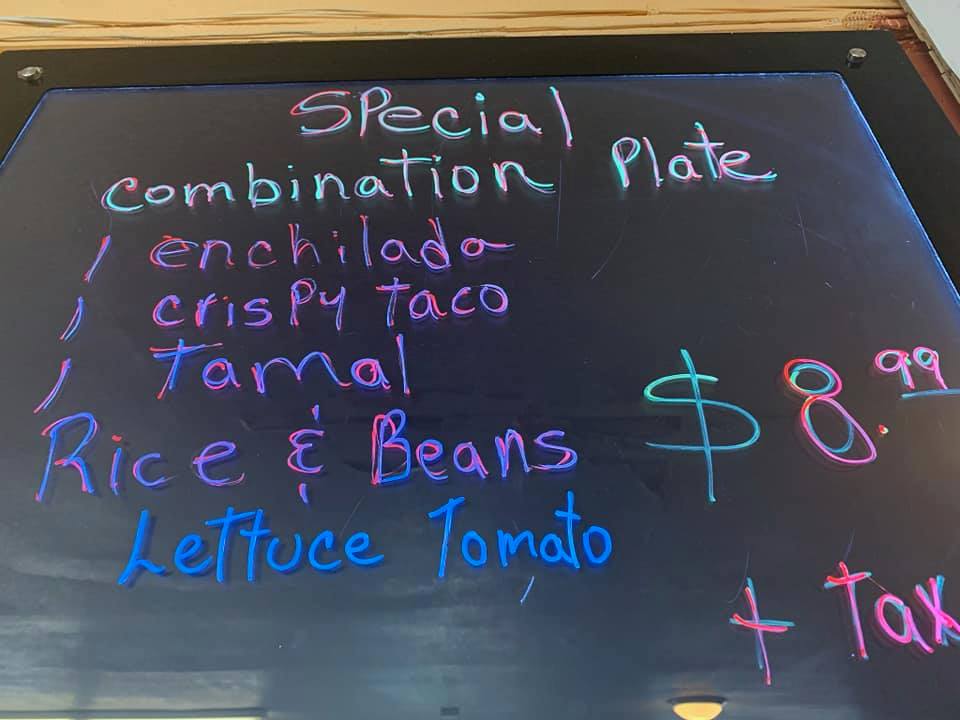 Special
Combination Plate
1 enchilada
1 crispy taco
1 Tamal
Rice & Beans
Lettuce Tomato
$8.99
+ Tax